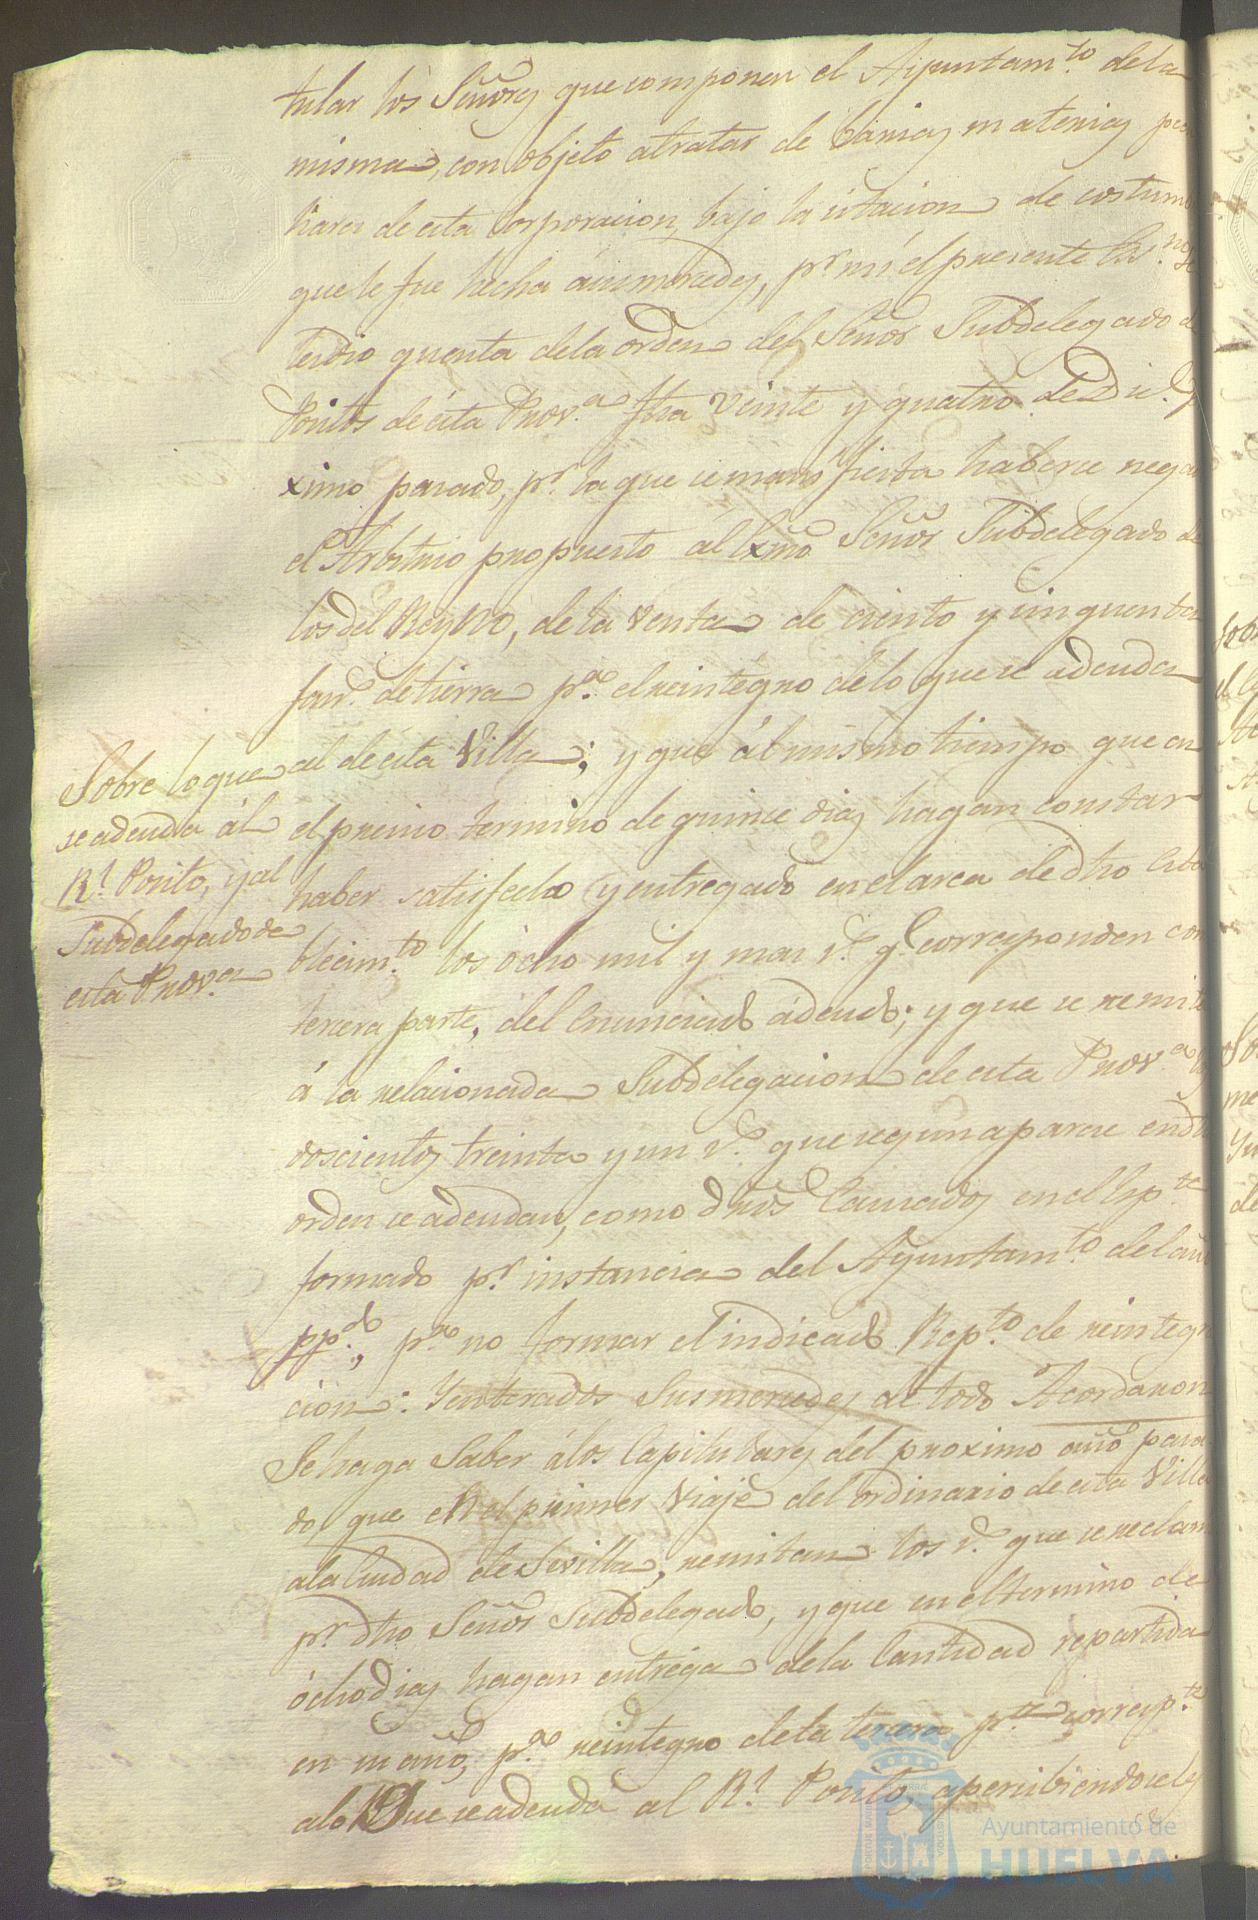 tular los Señores que componen el Ayuntam.to de la
misma, con objeto a tratar de barias materias pecu
liares de esta Corporacion, bajo la citacion de costum
que le fue hecha á sus mercedes, p.r mi el presente Es.no se
les dio quenta de la orden del Señor Subdelegado de
Positos de ésta Prov.a fha veinte y quatro de Dic.e
ximo pasado, p.r la que se manifiesta haberse nega
el Arbitrio propuesto al Exmo Señor Subdelegado de
los del Reyno, de la venta de ciento y cinquenta
fan.s de tierra p.a el reintegro de lo que se adeuda
al de esta Villa; y que ál mismo tiempo que en
el preciso termino de quince dias hagan constar
haber satisfecho y entregado en el arca de dho Esta
blecim.to los ócho mil y mas r.s q.e corresponden con
tercera parte, del enunciado ádeudo; y que se remit
á la relacionada Subdelegacion de esta Prov.a
doscientos treinta y un r.s que segun aparece en dha
orden se adeudan, como dros Causados en el Esp.te
formado p.r instancia del Ayuntam.to del año
pp.do, p.a no formar el indicado Rep.to de reintegr
cion: Y enterados sus mercedes de todo Acordaron
Se haga Saber á los Capitulares del proximo año pasa
do que en el primer Viaje del ordinario de esta Villa
a la Ciudad de Sevilla, remitan los r.s que se reclam
p.r dho Señor Subdelegado, y que en el termino de
ócho dias hagan entrega de la Cantidad repartida
en su año, p.a reintegro de la tercera p.te corresp.te
a lo que se adeuda al R.l Posito, apercibiendoseles
Sobre lo que
se adeuda ál
R.l Posito, y al
Subdelegado de
esta Prov.a
Ayuntamiento de
HUELVA